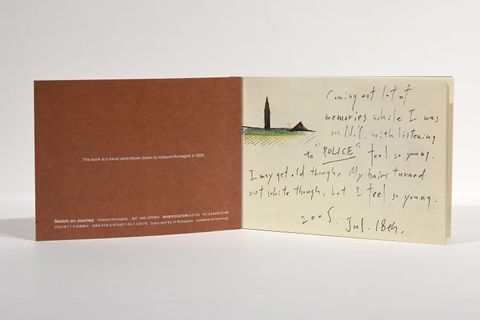 This book is a travel sketchbook drawn by Katsumi Komagata in 2005.
Sketch on Journey Katsumi Komagata
Coming out lot of
memories while I was
in N.Y. with listening
to "POLICE" feel so young.
I may get old though, My hairs turned
out white though, but I feel so young.
2005. Jul. 18th.